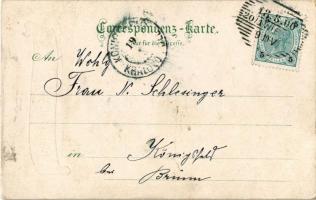 Correspondenz-Karte.
Nur für die Adresse.
An Wohlg
Frau N. Schlesinger
in Königsfeld
bei
Brünn
KRÁLOVO
12.5.00
5 5